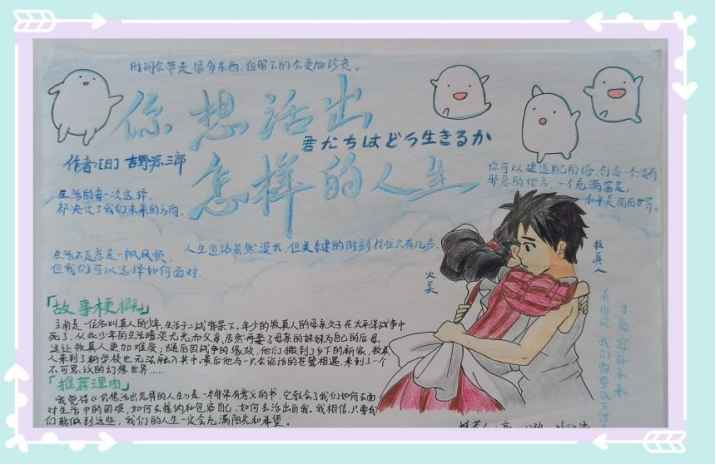 时间会带走很多东西,但留下的会更加珍贵。
你想活出
君たちはどう生きるか
怎样的人生
作者:[日]吉野源三郎
生活的每一次选择,
都决定了我们未来的方向。
你可以建造自己的塔,创造一个没有
邪恶的地方,一个充满富足,
和平美丽的世界。
人生道路虽然漫长,但关键的时刻往往只有几步。
生活不总是一帆风顺,
但我们可以选择如何面对。
牧真人
火美
「故事梗概」
主角是一位名叫真人的少年,生活于二战背景下,年少的牧真人的母亲久子在太平洋战争中
死了,从此少年的生活暗淡无光,而父亲,居然再娶了母亲的妹妹为自己的后母。
这让牧真人更加难受;随后因战争的缘故,他们搬到乡下的新家,牧真
人来到了新学校也无法融入其中,最后他与一只会说话的苍鹭相遇,来到了一个
不可思议的幻想世界……
「推荐理由」
我觉得《你想活出怎样的人生》是一本非常有意义的书,它教会了我们如何去面
对生活中的困难,如何去接纳和包容自己,如何去活出自我。我相信,只要我
们能做到这些,我们的人生一定会充满阳光和希望。